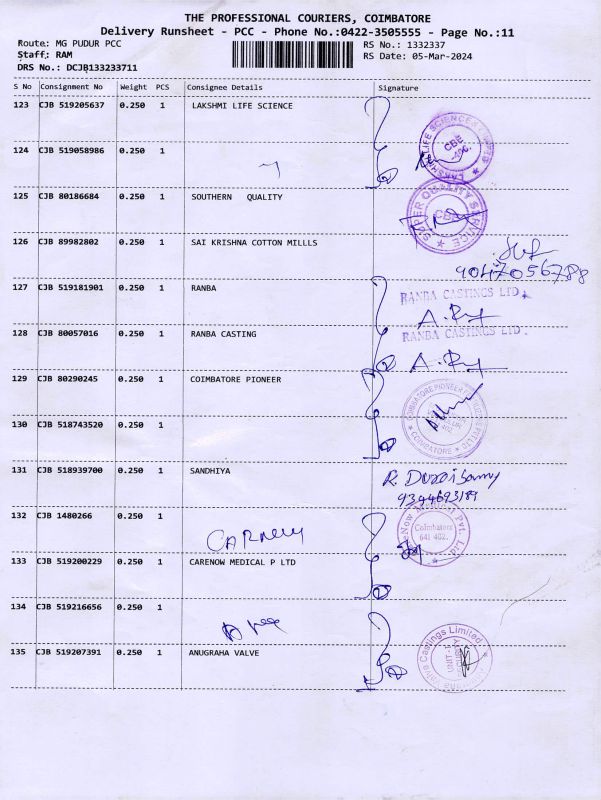 THE PROFESSIONAL COURIERS, COIMBATORE
Delivery Runsheet - PCC - Phone No.:0422-3505555 - Page No.:11
Route: MG PUDUR PCC RS No.: 1332337
Staff: RAM RS Date: 05-Mar-2024
DRS No.: DCJB133233711
S No Consignment No Weight PCS Consignee Details Signature
123 CJB 519205637 0.250 1 LAKSHMI LIFE SCIENCE
124 CJB 519058986 0.250 1
125 CJB 80186684 0.250 1 SOUTHERN QUALITY
SUPER QUALITY SERVICE
CBE
126 CJB 89982802 0.250 1 SAI KRISHNA COTTON MILLLS
9047056788
127 CJB 519181901 0.250 1 RANBA
RANBA CASTINGS LTD.,
128 CJB 80057016 0.250 1 RANBA CASTING
RANBA CASTINGS LTD.
129 CJB 80290245 0.250 1 COIMBATORE PIONEER
COIMBATORE PIONEER
COIMBATORE
130 CJB 518743520 0.250 1
131 CJB 518939700 0.250 1 SANDHIYA
9344693189
132 CJB 1480266 0.250 1
Medical Pvt. Ltd.
Coimbatore
641 402.
133 CJB 519200229 0.250 1 CARENOW MEDICAL P LTD
134 CJB 519216656 0.250 1
135 CJB 519207391 0.250 1 ANUGRAHA VALVE
Valve Castings Limited